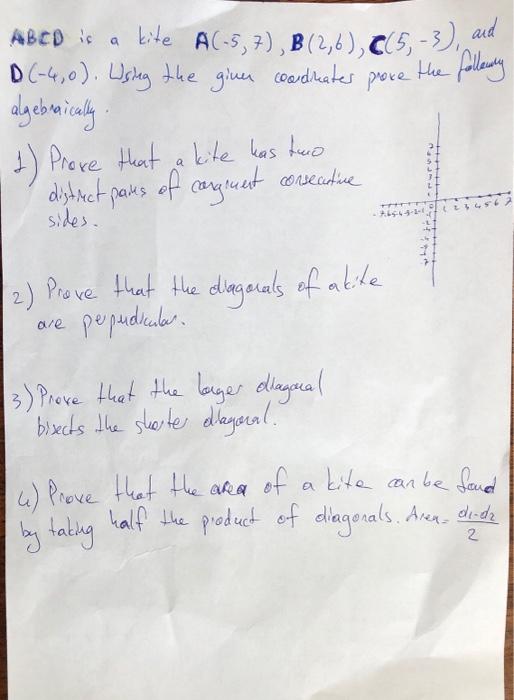 ABCD is a kite A(-5,7), B(2,6), C(5,-3), and
D(-4,0). Using the given coordinates prove the following
algebraically.
1) Prove that a kite has two
distinct pairs of congruent consecutive
sides.
2) Prove that the diagonals of a kite
are perpudicular.
3) Prove that the longer diagonal
bisects the shorter diagonal.
4) Prove that the area of a kite can be found
by taking half the product of diagonals. Area = d1·d2
2